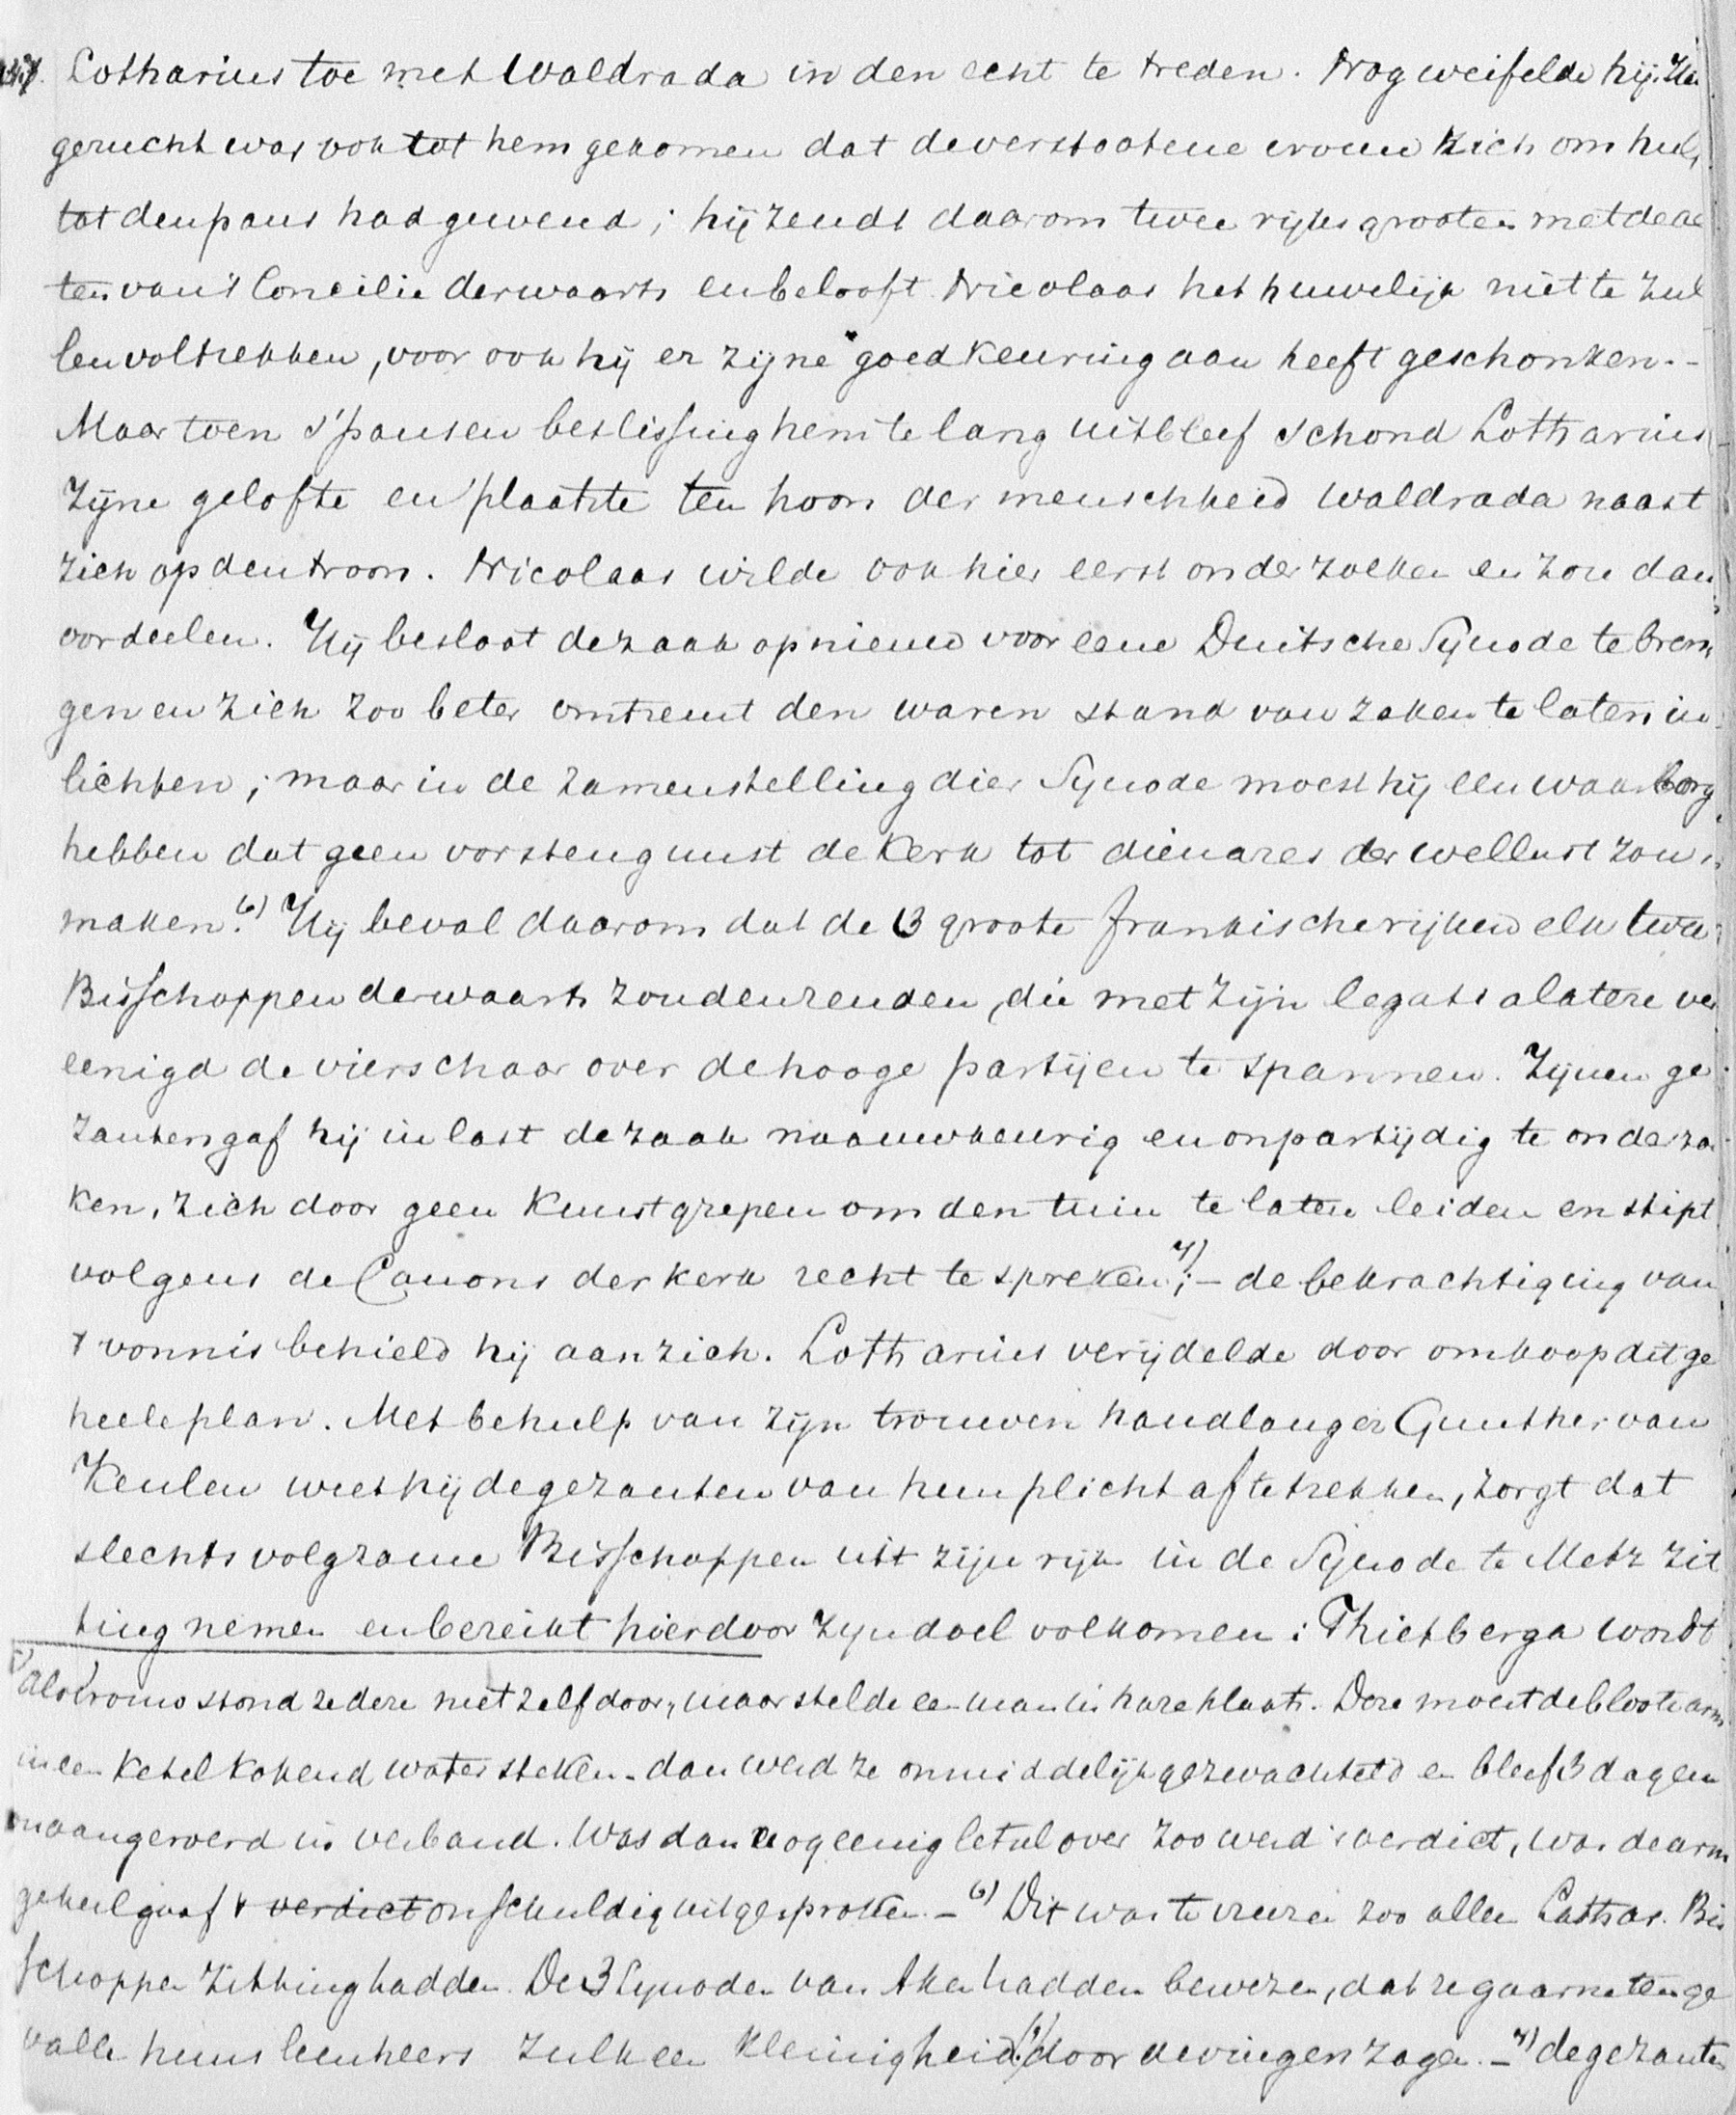 Lotharius toe met Waldrada in den echt te treden. Nog weifelde hij.
gerucht was ook tot hem gekomen dat de verstootene vrouw zich om hulp
tot den paus had gewend; hij zendt daarom twee rijksgrooten met de ac
ten van 't Concilie derwaarts en belooft Nicolaas het huwelijk niet te zul
len voltrekken, voor ook hij er zijne goedkeuring aan heeft geschonken.-
Maar toen s'pausen beslissing hem te lang uitbleef schond Lotharius
zijne gelofte en plaatste ten hoon der menschheid Waldrada naast
zich op den troon. Nicolaas wilde ook hier eerst onderzoeken en zou dan
oordeelen. Hij besloot de zaak op nieuw voor eene Duitsche Synode te bren
gen en zich zoo beter omtrent den waren stand van zaken te laten in
lichten; maar in de zamenstelling dier Synode moest hij een waarborg
hebben dat geen vorstengunst de Kerk tot dienares der wellust zou
maken.6) Hij beval daarom dat de 3 groote frankische rijken elk twee
Bisschoppen derwaarts zouden zenden, die met zijn legats a latere ver
eenigd de vierschaar over de hooge partijen te spannen. Zijnen ge
zanten gaf hij in last de zaak naauwkeurig en onpartijdig te onderzoe
ken, zich door geen kunstgrepen om den tuin te laten leiden en stipt
volgens de Canons der kerk recht te spreken7);- de bekrachtiging van
't vonnis behield hij aan zich. Lotharius verijdelde door omkoop dit ge
heele plan. Met behulp van zijn trouwen handlanger Gunther van
Keulen weet hij de gezanten van hun plicht af te trekken, zorgt dat
slechts volgzame Bisschoppen uit zijn rijk in de Synode te Metz zit
ting nemen en bereikt hierdoor zijn doel volkomen: Thietberga wordt
stond ze deze niet zelf door, maar stelde een man in hare plaats. Deze moest de bloote arm
in een ketel kokend water steken. dan werd ze onmiddelijk gezwachteld en bleef 3 dagen
onaangeroerd in verband. Was dan nog eenig letsel over zoo werd 't verdict, was de arm
geheel gaaf 't verdict onschuldig uitgesproken.- 6) Dit was te vreezen zoo alleen Lothar. Bis
schoppen zitting hadden. De 3 Synoden van Aken hadden bewezen, dat ze gaarne ten ge
valle huns leenheers zulk een kleinigheid(!) door de vingers zagen.- 7) de gezanten